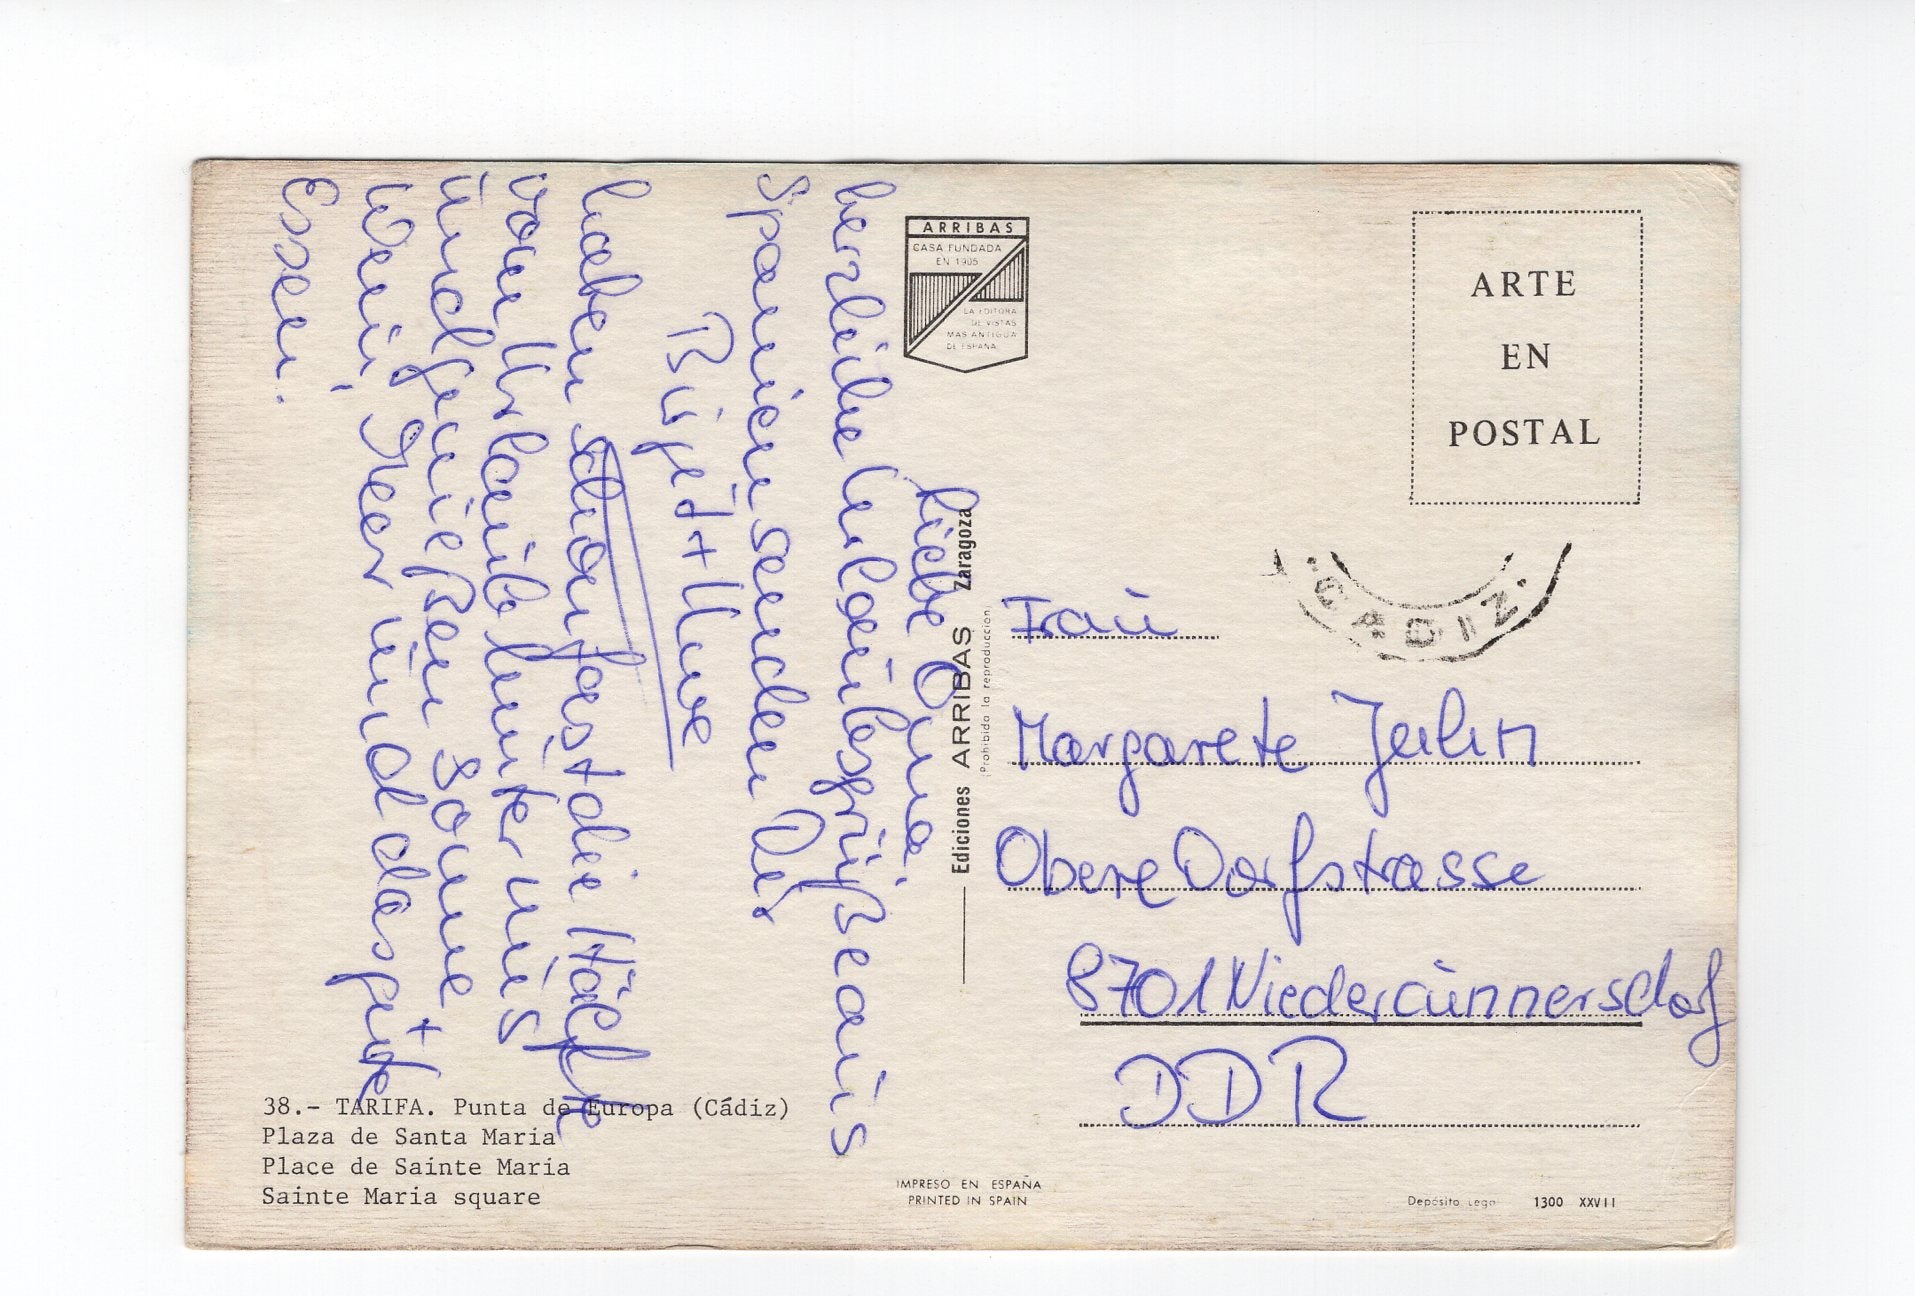 ARRIBAS
CASA FUNDADA
EN 1905
LA EDITORA
DE VISTAS
MAS ANTIGUA
DE ESPAÑA
Liebe Oma,
herzliche Urlaubsgrüße aus
Spanien senden Dir
Birgit + Uwe
haben schon fast die Hälfte
vom Urlaub hinter uns
und genießen Sonne +
Wein, Meer und das gute
Essen.
38.- TARIFA. Punta de Europa (Cádiz)
Plaza de Santa Maria
Place de Sainte Maria
Sainte Maria square
Ediciones ARRIBAS Zaragoza
(Prohibida la reproducción)
IMPRESO EN ESPAÑA
PRINTED IN SPAIN
ARTE
EN
POSTAL
CADIZ
Frau
Margarete
Obere Dorfstrasse
8701 Niedercunnersdorf
DDR
Depósito Legal 1300 XXVII